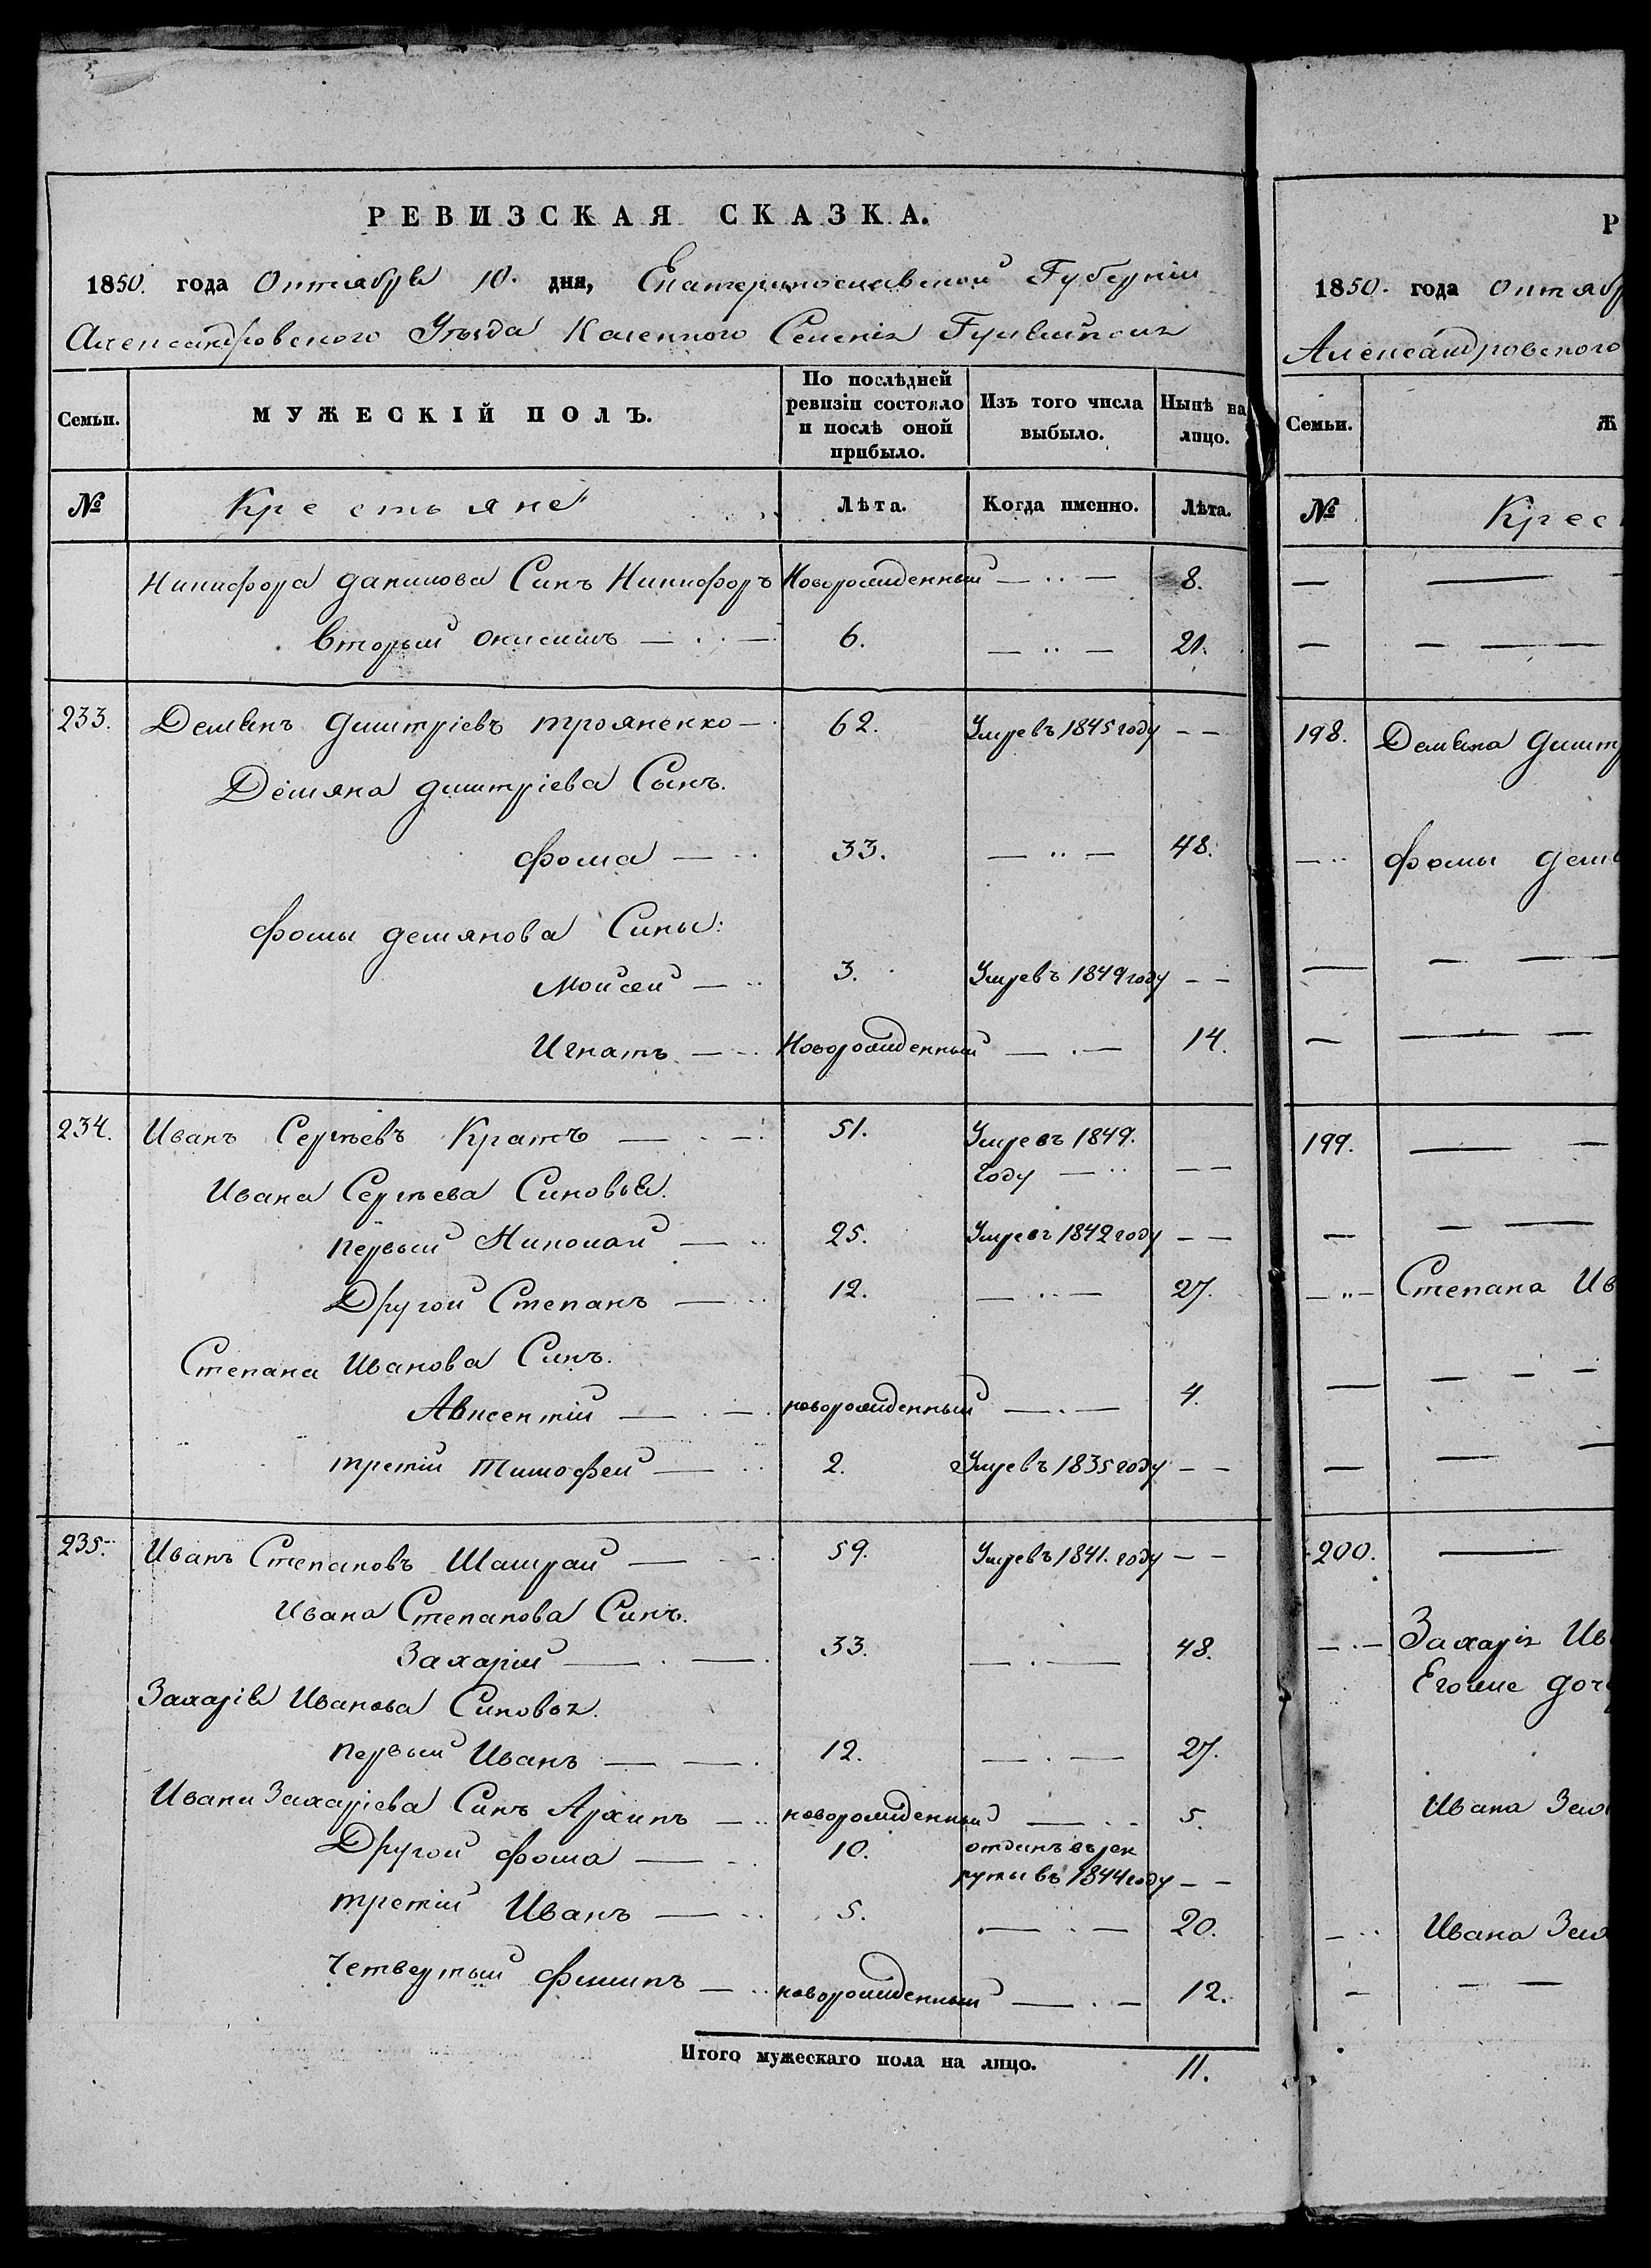 РЕВИЗСКАЯ СКАЗКА.
1850. года Октября 10. дня, Екатеринославской Губернiи
Александровского Уѣзда Казенного Селенiя Гуляйполя
Семьи.
МУЖЕСКIЙ ПОЛЪ.
По послѣдней ревизiи состояло и послѣ оной прибыло.
Изъ того числа выбыло.
Нынѣ на лицо.
№ Крестьяне Лѣта. Когда именно. Лѣта.
Никифора данилова Синъ Никифоръ Новорожденный — .. — 8.
Вторый Онисимъ — . — 6. — .. — 21.
233. Демянъ дмитрiевъ трояненко — 62. Умре въ 1845 году — —
Демяна дмитрiева Сынъ.
фома — .. 33. — .. — 48.
фомы демянова Сины:
Моисей — .. 3. Умре въ 1849 году — —
Игнатъ — .. Новорожденный — . — 14.
234. Иванъ Сергѣевъ Кратъ — . — 51. Умре въ 1849.
году — .. — —
Ивана Сергѣева Синовья.
первый Николай — .. 25. Умре въ 1842 году — —
Другой Степанъ — .. 12. — .. — 27.
Степана Иванова Синъ.
Авксентiй — . — новорожденный — . — 4.
третiй Тимофей — .. 2. Умре въ 1835 году — —
235. Иванъ Степановъ Шамрай — — 59. Умре въ 1841. году — —
Ивана Степанова Синъ.
Захарiй — . — 33. — . — 48.
Захарiя Иванова Синовья.
первый Иванъ — — 12. — . — 27.
Ивана Захарiева Синъ Архипъ — .. новорожденный — .. 5.
Другой фома — .. 10. отданъ въ рек
руты въ 1844 году — —
третiй Иванъ — .. 5. — .. — 20.
четвертый филипъ — .. новорожденный — . — 12.
Итого мужескаго пола на лицо. 11.
Р
1850. года Октяб
Александровского
Семьи. Ж
№ Крес
198. Демяна дмит
фомы демя
199.
Степана Ив
200.
Захарiя Ив
Егоже доч
Ивана Заха
Ивана Заха